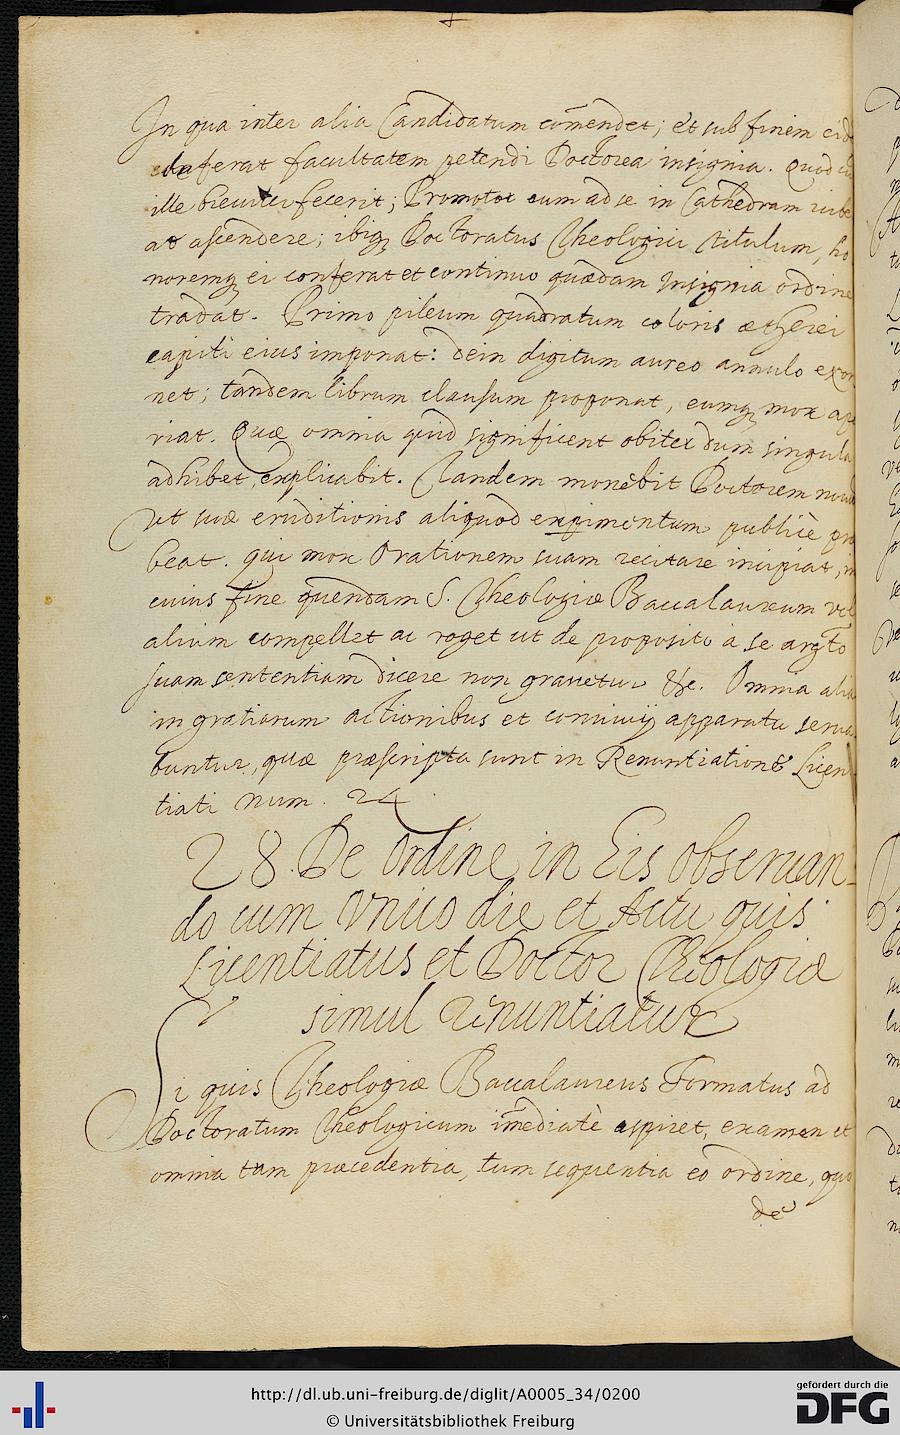 In qua inter alia Candidatum com̃endet; et sub finem eid
deferat facultatem petendi Doctorea insignia. Quod cu
ille breuiter fecerit; Promotor eum ad se in Cathedram iube
at ascendere; ibiq Doctoratus Theologici titulum, ho
noremq ei conferat et continuo quædam Insignia ordine
tradat. Primo pileum quadratum coloris ætherei
capiti eius imponat: dein digitum aureo annulo exor
net; tandem librum clausum proponat, eumq mox ape
riat. Quæ omnia quid significent obiter dum singula
adhibet, explicabit. Tandem monebit Doctorem nouu
ut suæ eruditionis aliquod experimentum publicè præ
beat. qui mox Orationem suam recitare incipiat, in
cuius fine quendam S. Theologiæ Baccalaureum vel
alium compellet ac roget ut de proposito à se argto
suam sententiam dicere non grauetur &c. Omnia alia
in gratiarum actionibus et conuiuij apparatu serua
buntur, quæ præscripta sunt in Renuntiatione Licen
tiati num. 24
28. De Ordine in Eis obseruan-
do cum Vnico die et Actu quis
Licentiatus et Doctor Theologiæ
simul renuntiatur
Si quis Theologiæ Baccalaureus Formatus ad
Doctoratum Theologicum im̃ediatè aspiret, examen et
omnia tam præcedentia, tum sequentia eo ordine, quo
de
http://dl.ub.uni-freiburg.de/diglit/A0005_34/0200
© Universitätsbibliothek Freiburg
gefördert durch die
DFG